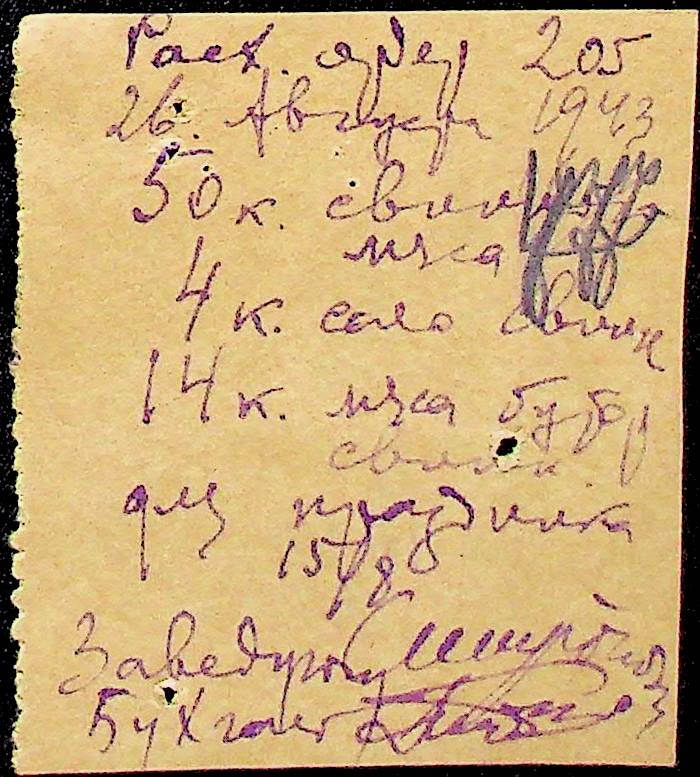 Расх. ордер 205
26. Августа 1943
50 к. свин
мяса
4 к. сало свин
14 к. мяса
свин.
для праздника
15/
Заведующ
Бухгалт